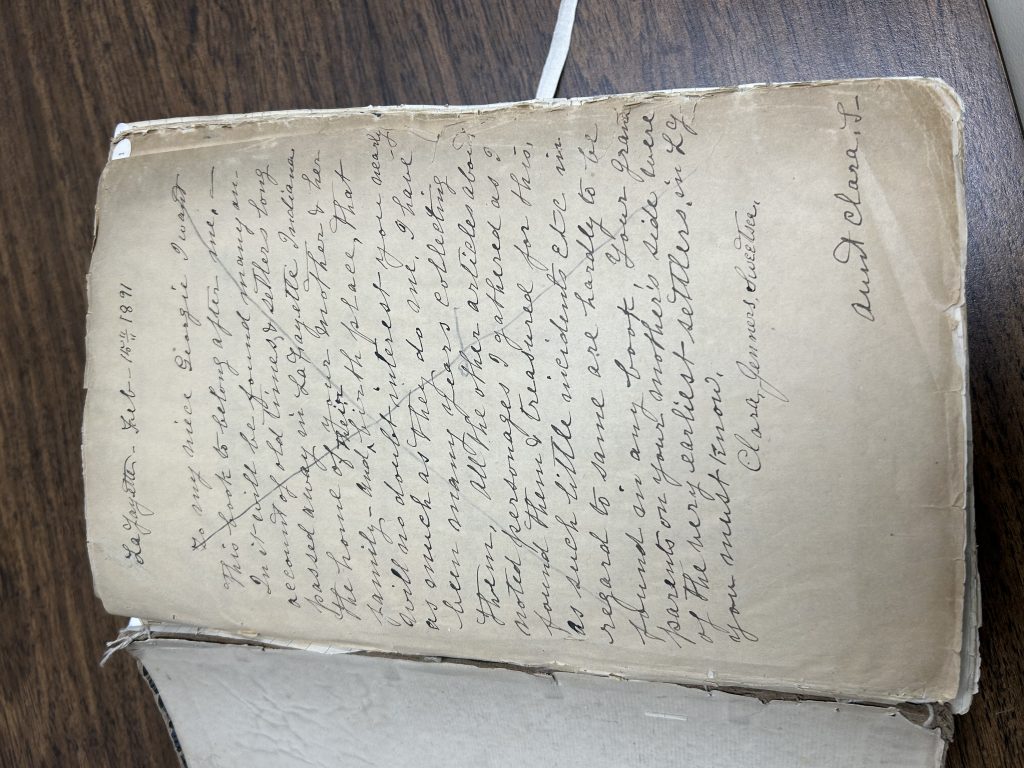 La Fayette - Feb - 15th 1891
To my niece Georgie I want
This book to belong after me, —
In it will be found many an-
account of old times & settlers long
passed away in La Fayette Indiana
the home of your Mother & her
family - and their birth place, That
will no doubt interest you nearly
as much as they do me. I have
been many years collecting
them, all the other articles about
noted personages I gathered as I
found them & treasured for this,
as such little incidents etc in
regard to same are hardly to be
found in any book. Your grand
parents on your mother's side were
of the very earliest settlers, in LF
you must know.
Clara, Jenners, Sweetser,
aunt Clara. S—
1